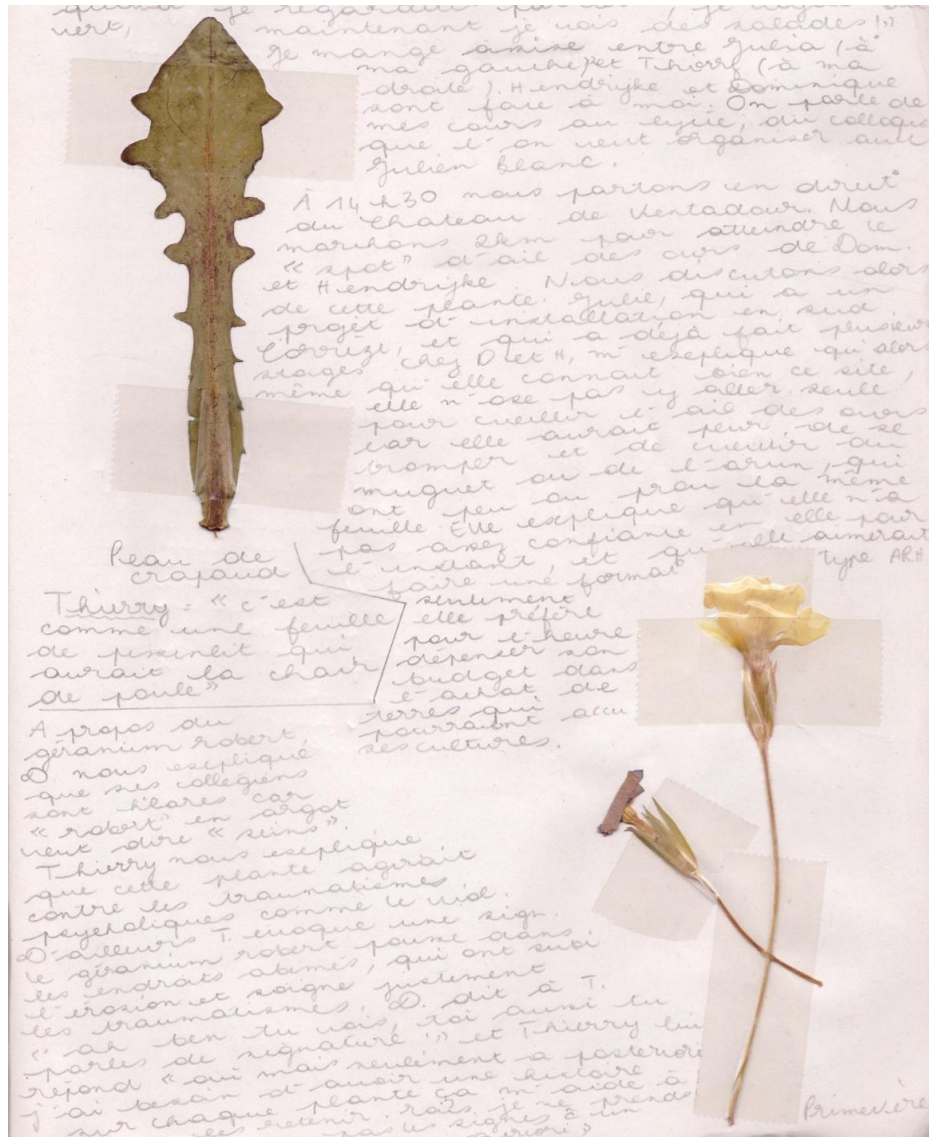 vert, maintenant je vois des salades !"
Je mange assise entre Julia (à
ma gauche) et Thierry (à ma
droite). Hendrijke et Dominique
sont face à moi. On parle de
mes cours au lycée, du colloque
que l'on veut organiser avec
Julien Blanc.
À 14h30 nous partons en direct°
du Chateau de Ventadour. Nous
marchons 2km pour atteindre le
"spot" d'ail des ours de Dom.
et Hendrijke. Nous discutons alors
de cette plante. Julie, qui a un
projet d'installation en sud
Corrèze, et qui a déjà fait plusieurs
stages chez D et H, m'explique qu'alors
même qu'elle connait bien ce site,
elle n'ose pas y aller seule
pour cueillir l'ail des ours
car elle aurait peur de se
tromper et de cueillir du
muguet ou de l'arum, qui
ont peu ou prou la même
feuille. Elle explique qu'elle n'a
pas assez confiance en elle pour
l'instant, et qu'elle aimerait
faire une format° type ARH
seulement
elle préfère
pour l'heure
dépenser son
budget dans
l'achat de
terres qui
pourraient accu
ses cultures.
Peau de
crapaud
Thierry = "c'est
comme une feuille
de pissenlit qui
aurait la chair
de poule"
A propos du
géranium robert,
D. nous explique
que ses collégiens
sont hilares car
"robert" en argot
veut dire "seins"
Thierry nous explique
que cette plante agirait
contre les traumatismes
psychologiques comme le viol.
D'ailleurs T. évoque une sign.
le géranium robert pousse dans
les endroits abimés, qui ont subi
l'érosion et soigne justement
les traumatismes. D. dit à T.
"ah ben tu vois, toi aussi tu
parles de signature !" et Thierry lui
répond "oui mais seulement a posteriori
j'ai besoin d'avoir une histoire
sur chaque plante ça m'aide à
les retenir. mais je ne prends
pas les signes à un
priori"
Primevère